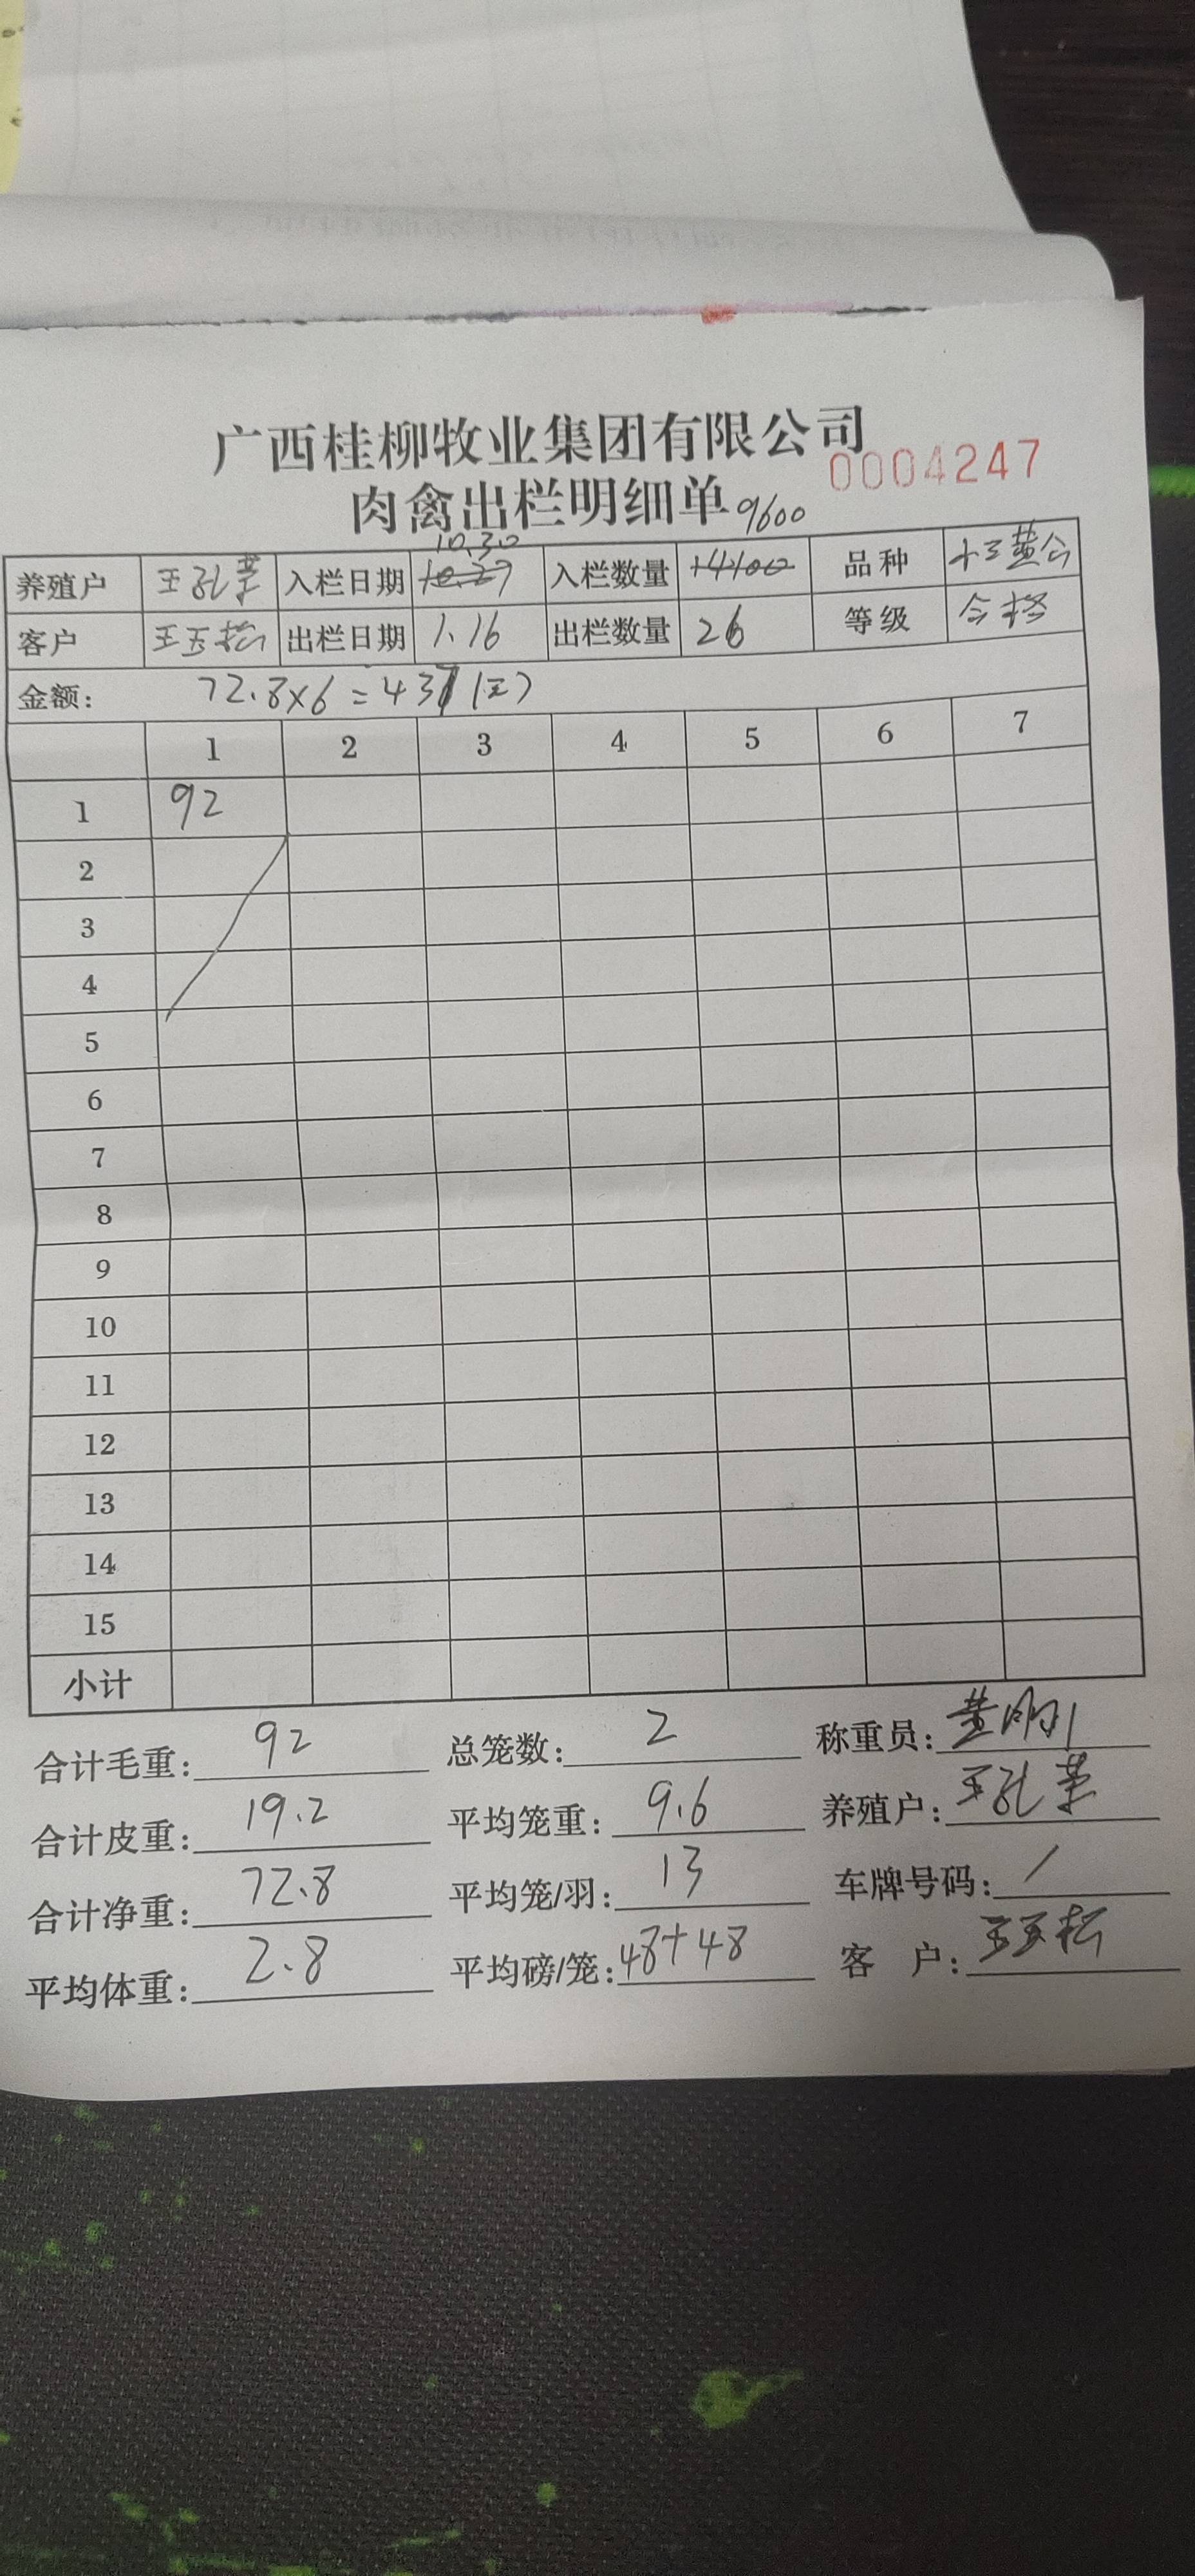 广西桂柳牧业集团有限公司
0004247
肉禽出栏明细单 9600
10.30
养殖户 王孔荣 入栏日期 10.29 入栏数量 14100 品种
客户 出栏日期 1.16 出栏数量 26 等级 合格
金额： 72.8×6=437(元)
1 2 3 4 5 6 7
1 92
2
3
4
5
6
7
8
9
10
11
12
13
14
15
小计
合计毛重： 92 总笼数： 2 称重员： 黄明川
合计皮重： 19.2 平均笼重： 9.6 养殖户： 王孔荣
合计净重： 72.8 平均笼/羽： 13 车牌号码： /
平均体重： 2.8 平均磅/笼： 48+48 客 户： 王玉松